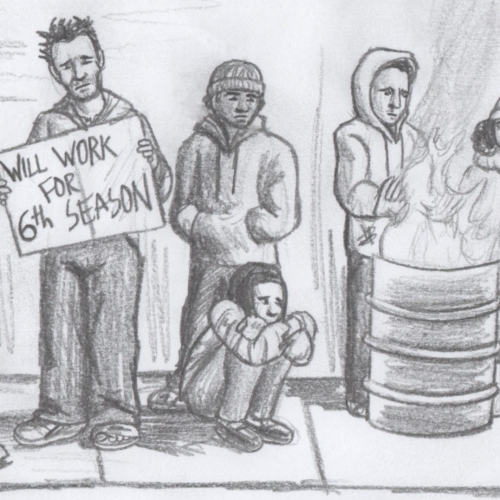 WILL WORK
FOR
6th SEASON